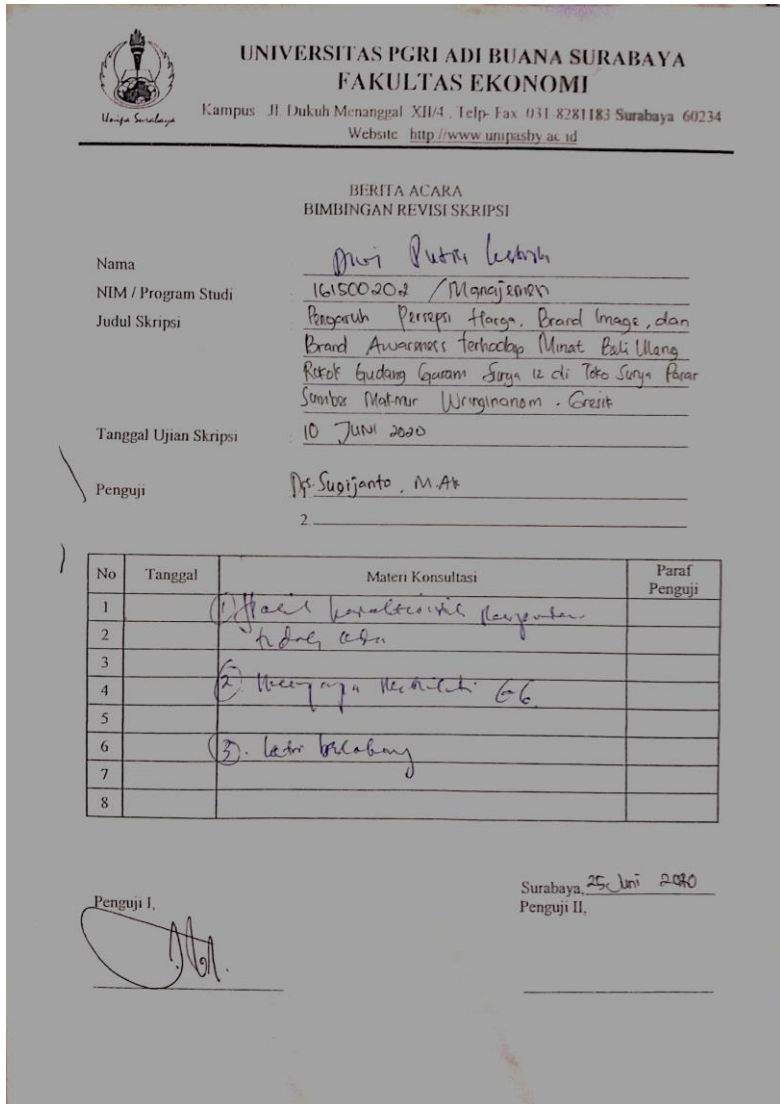 UNIVERSITAS PGRI ADI BUANA SURABAYA
FAKULTAS EKONOMI
Kampus Jl. Dukuh Menanggal XII/4 , Telp- Fax 031-8281183 Surabaya 60234
Website http://www.unipasby.ac.id
Unipa Surabaya
BERITA ACARA
BIMBINGAN REVISI SKRIPSI
Nama : Dwi Putri
NIM / Program Studi : 161500202 / Manajemen
Judul Skripsi : Pengaruh Persepsi Harga, Brand Image, dan
Brand Awareness terhadap Minat Beli Ulang
Rokok Gudang Garam Surya 12 di Toko Surya Pasar
Sumber Makmur Wringinanom - Gresik
Tanggal Ujian Skripsi : 10 JUNI 2020
Penguji Drs. Sugijanto, M.Ak
2.
No Tanggal Materi Konsultasi Paraf Penguji
1 (1) karakteristik
2 tidak ada
3
4 (2)
5
6 (3). latar belakang
7
8
Surabaya, 25 Juni 2020
Penguji I,
Penguji II,